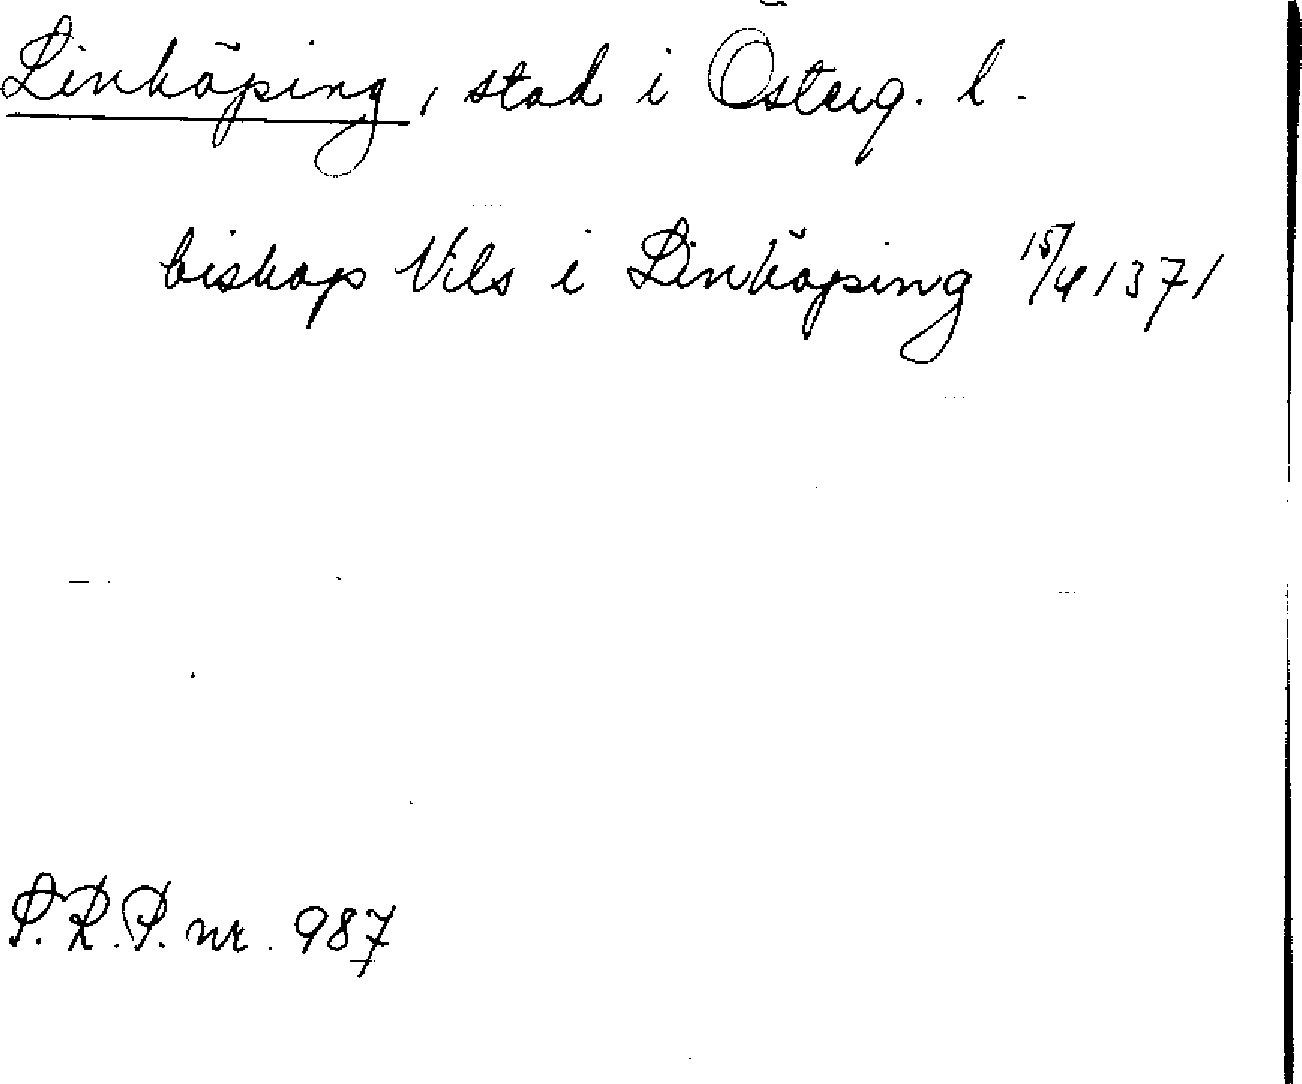 Linköping, stad i Österg. l.
biskop Nils i Linköping 15/4 1371
P.R.P. nr. 987